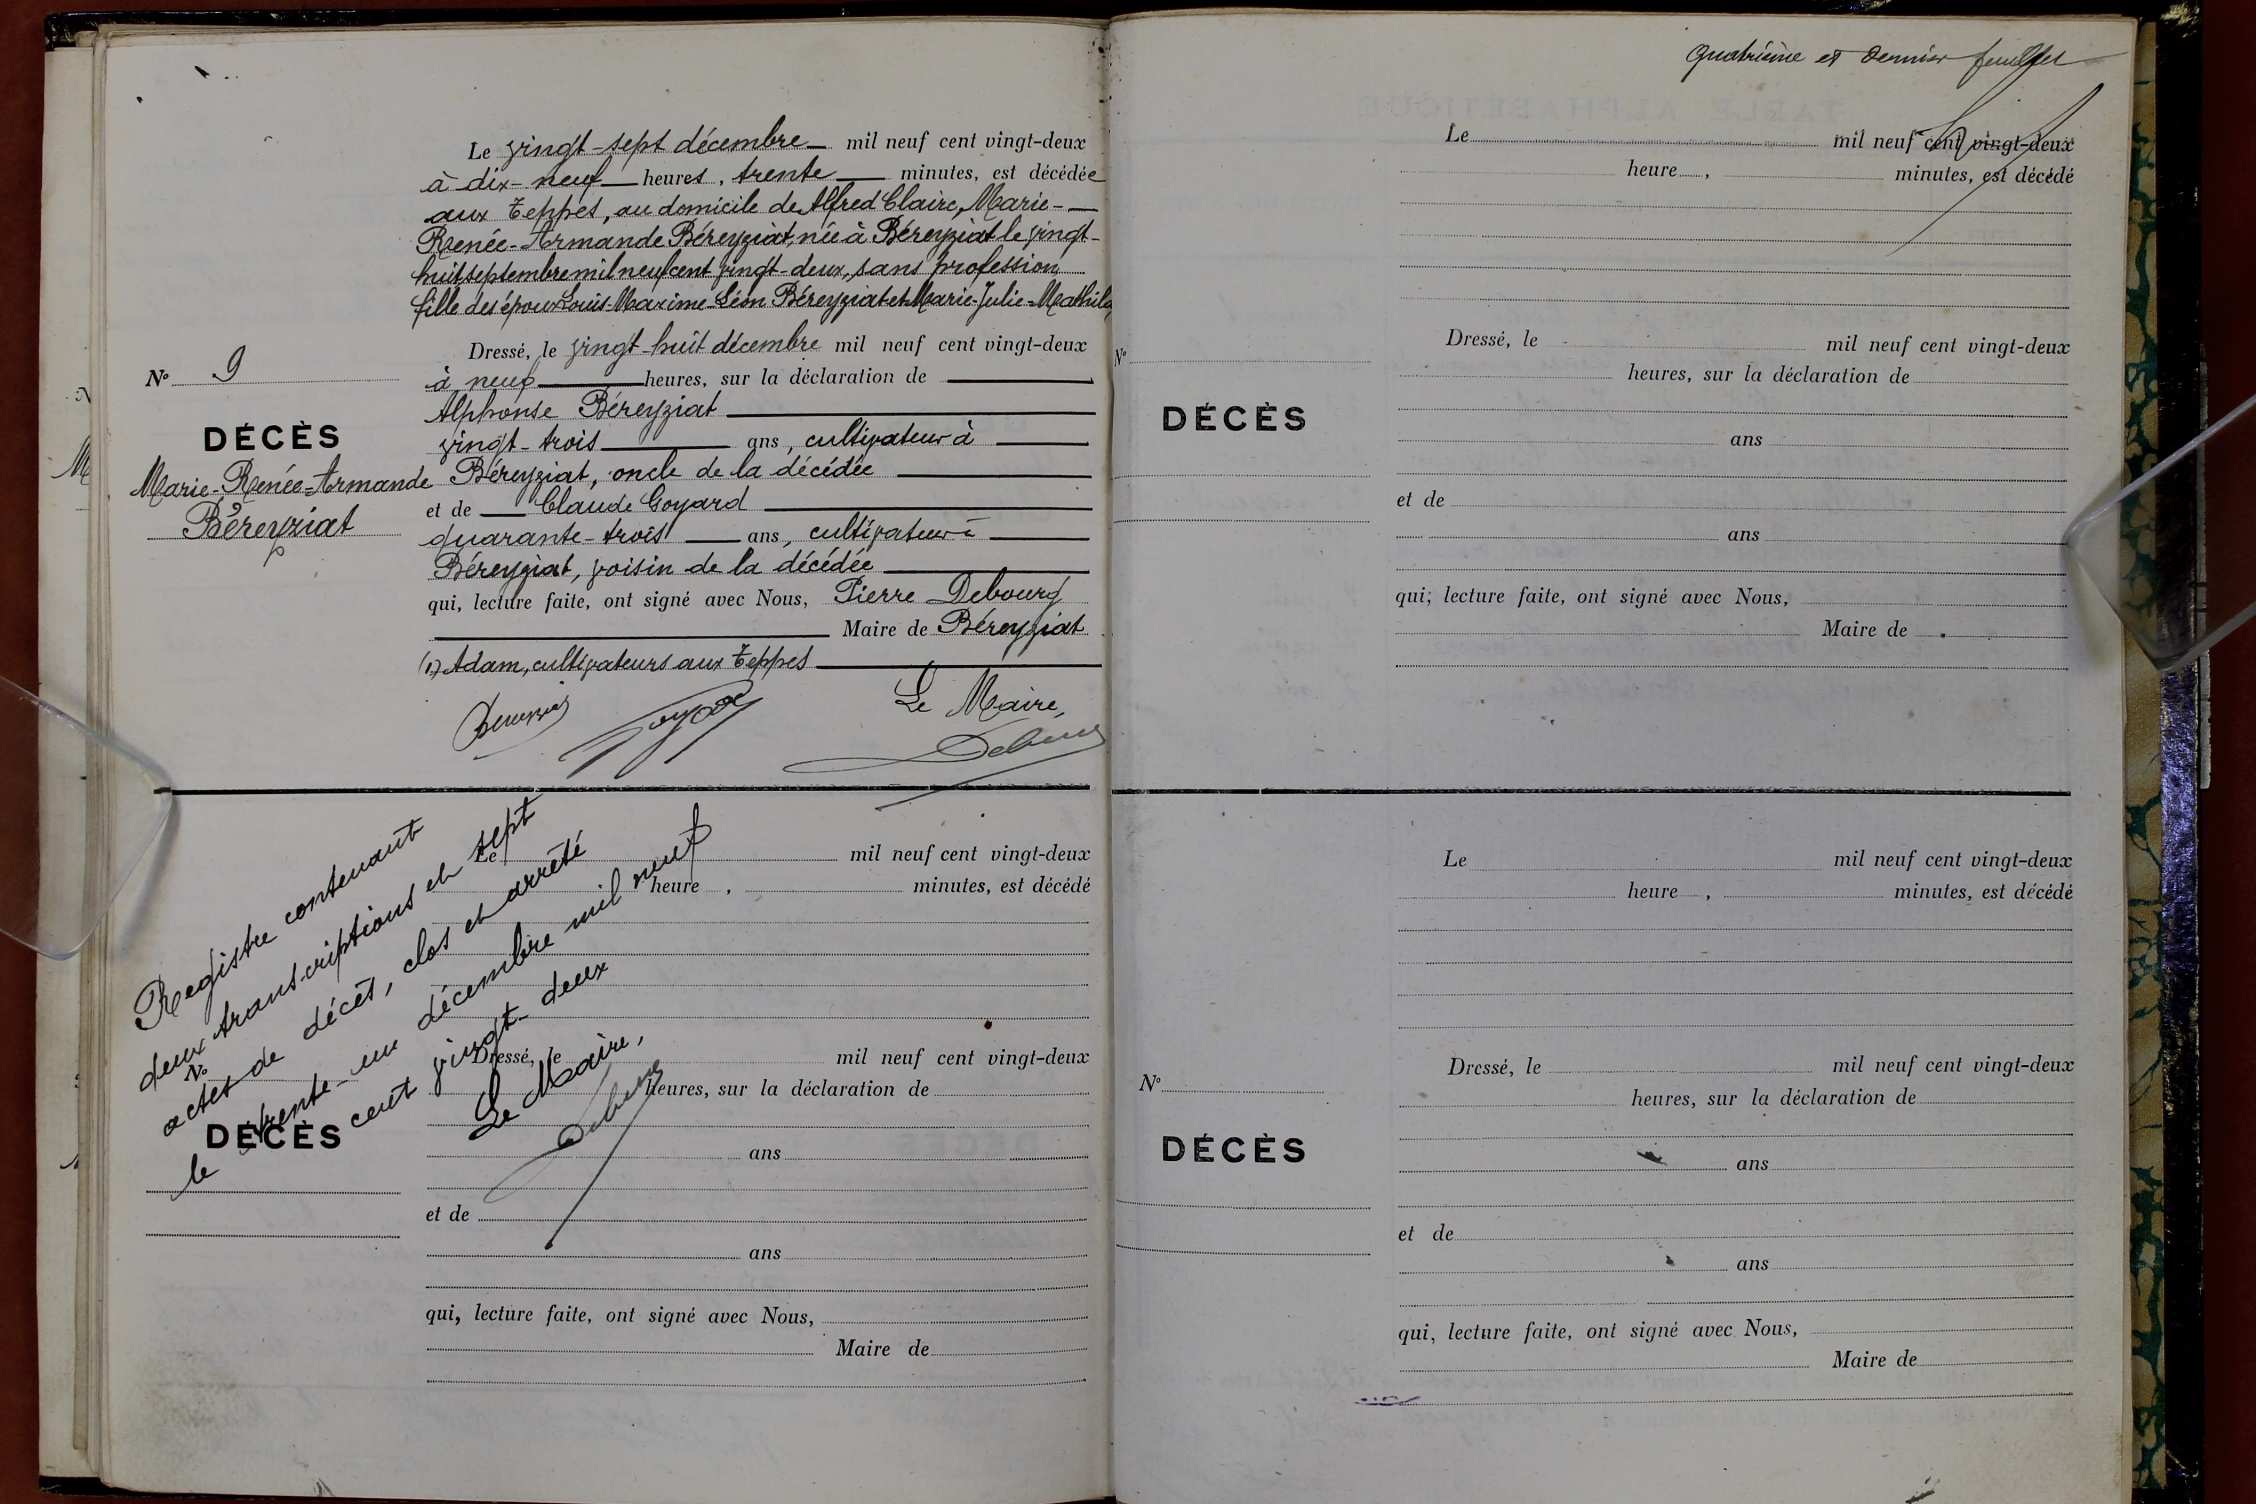 Le vingt-sept décembre mil neuf cent vingt-deux
à dix-neuf heures, trente minutes, est décédée
aux Teppes, au domicile de Alfred Claire, Marie-
Renée-Armande Béreyziat, née à Béreyziat le vingt-
huit septembre mil neuf cent vingt-deux, sans profession
fille des époux Louis-Maxime-Léon Béreyziat et Marie-Julie-Mathilde
Dressé, le vingt-huit décembre mil neuf cent vingt-deux
à neuf heures, sur la déclaration de
Alphonse Béreyziat
vingt-trois ans, cultivateur à
Béreyziat, oncle de la décédée
et de Claude Goyard
quarante-trois ans, cultivateur à
Béreyziat, voisin de la décédée
qui, lecture faite, ont signé avec Nous, Pierre Debourg
Maire de Béreyziat
(1) Adam, cultivateurs aux Teppes
Le Maire,
Nº 9
DÉCÈS
Marie-Renée-Armande
Béreyziat
Registre contenant
deux transcriptions et sept
actes de décès, clos et arrêté
le trente-un décembre mil neuf
cent vingt-deux
Le Maire,
Le mil neuf cent vingt-deux
heure , minutes, est décédé
Dressé, le mil neuf cent vingt-deux
heures, sur la déclaration de
ans
et de
ans
qui, lecture faite, ont signé avec Nous,
Maire de
Nº
DÉCÈS
Quatrième et dernier feuillet
Le mil neuf cent vingt-deux
heure , minutes, est décédé
Dressé, le mil neuf cent vingt-deux
heures, sur la déclaration de
ans
et de
ans
qui, lecture faite, ont signé avec Nous,
Maire de
Nº
DÉCÈS
Le mil neuf cent vingt-deux
heure , minutes, est décédé
Dressé, le mil neuf cent vingt-deux
heures, sur la déclaration de
ans
et de
ans
qui, lecture faite, ont signé avec Nous,
Maire de
Nº
DÉCÈS